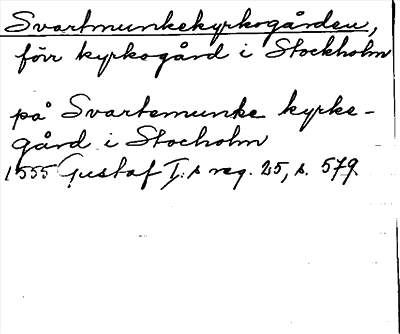 Svartmunkekyrkogården,
förr kyrkogård i Stockholm
på Svartemunke kyrke-
gård i Stocholm
1555 Gustaf I:s reg. 25, s. 579.